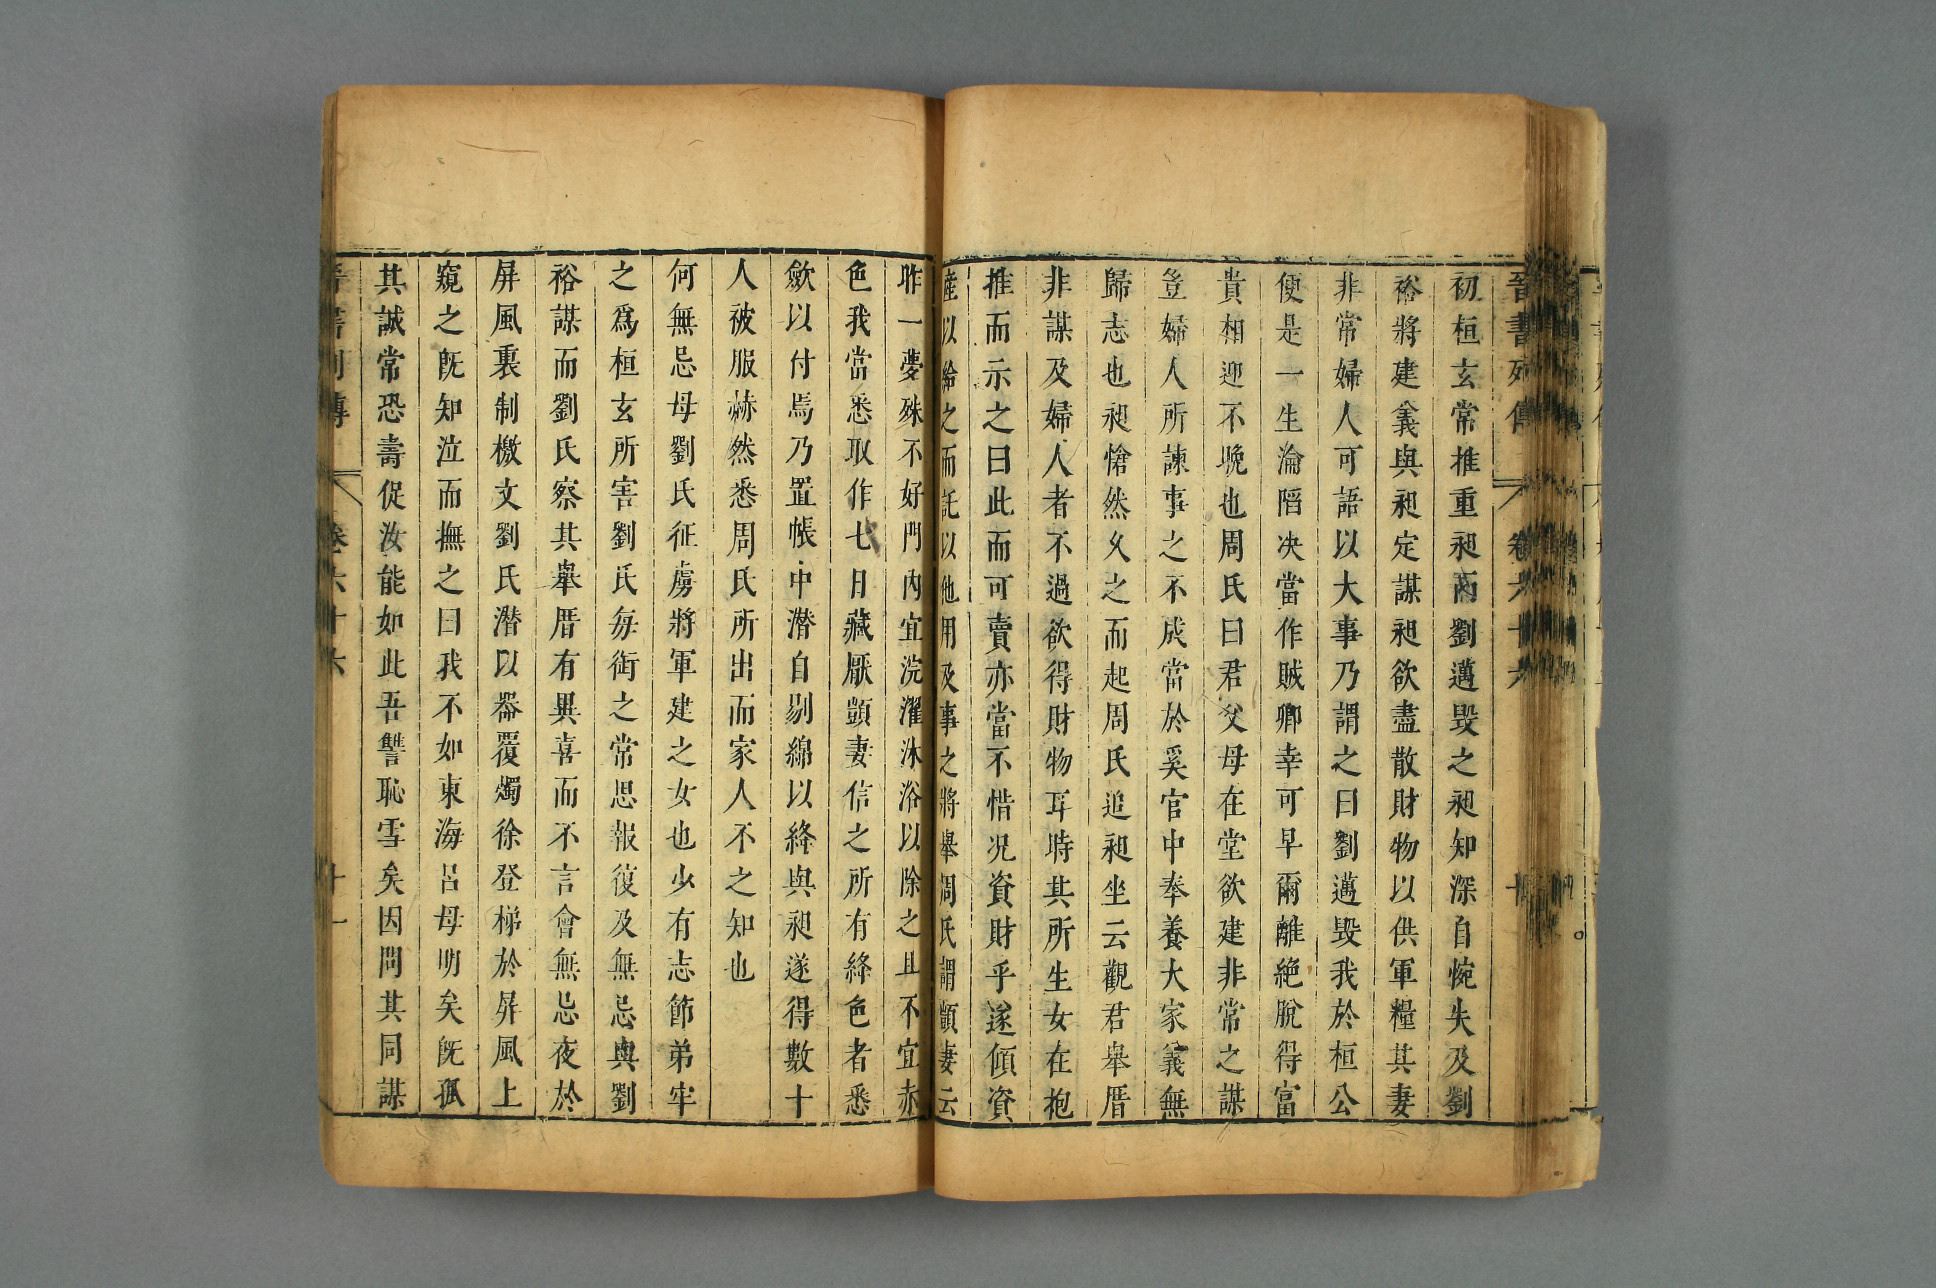 晉書列傳 卷六十六 十
初桓玄常推重昶而劉邁毁之昶知深自惋失及劉
裕將建義與昶定謀昶欲盡散財物以供軍糧其妻
非常婦人可語以大事乃謂之曰劉邁毁我於桓公
便是一生淪陷决當作賊卿幸可早爾離絶脫得富
貴相迎不晚也周氏曰君父母在堂欲建非常之謀
豈婦人所諫事之不成當於奚官中奉養大家義無
歸志也昶愴然久之而起周氏追昶坐云觀君舉厝
非謀及婦人者不過欲得財物耳時其所生女在抱
推而示之曰此而可賣亦當不惜况資財乎遂傾資
産以給之而託以他用及事之將舉周氏謂顗妻云
昨一夢殊不好門内宜浣濯沐浴以除之且不宜赤
色我當悉取作七日藏厭顗妻信之所有絳色者悉
歛以付焉乃置帳中潜自剔綿以絳與昶遂得數十
人被服赫然悉周氏所出而家人不之知也
何無忌母劉氏征虜將軍建之女也少有志節弟牢
之爲桓玄所害劉氏每銜之常思報復及無忌與劉
裕謀而劉氏察其舉厝有異喜而不言會無忌夜於
屏風裏制檄文劉氏潜以器覆燭徐登梯於屏風上
窺之旣知泣而撫之曰我不如東海呂母明矣旣孤
其誠常恐壽促汝能如此吾讐恥雪矣因問其同謀
晉書列傳 卷六十六 十一